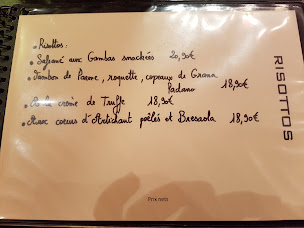 • Risottos :
• Safrané aux Gambas snackées 20,90€
• Jambon de Parme, roquette, copeaux de Grana
Padano 18,90€
• A la crème de Truffe 18,90€
• Avec coeurs d'Artichaut poêlés et Bresaola 18,90€
RISOTTOS
Prix nets